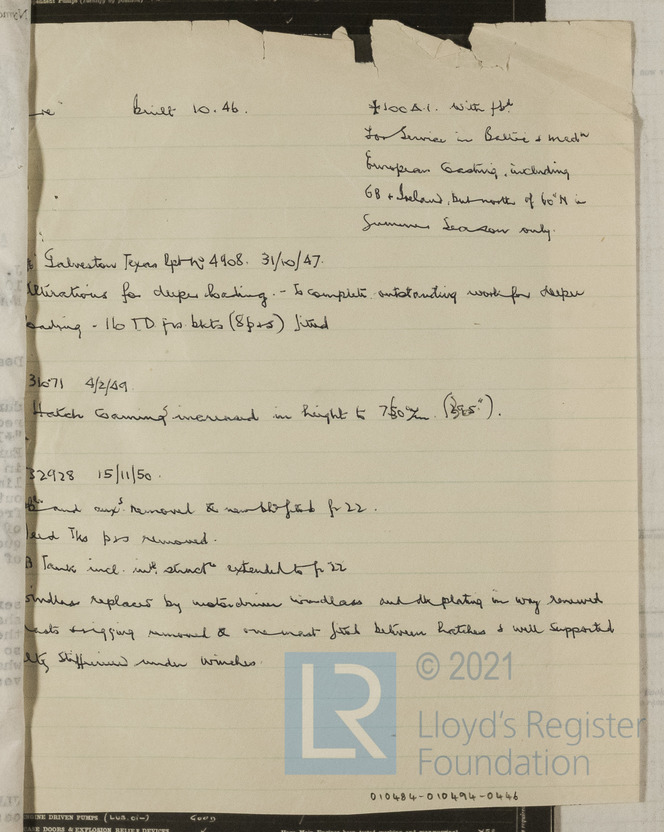 built 10.46.
✠100 A.1. with fbd
For Service in Baltic & Medn
European Coasting, including
GB & Ireland, but north of 60°N in
Summer Season only.
Galveston Texas Rpt No 4908. 31/10/47.
lterations for deeper loading. - To complete outstanding work for deeper
oading - 16 TD frs bkts (8p&s) fitted
31071 4/2/49
Hatch Coamings increased in height to
32928 15/11/50.
and auxs removed & new fitted fr 22.
Tks p&s removed.
B Tank incl. int. structe extended to fr 22
indlass replaced by motor driven windlass and dk plating in way renewed
asts & rigging removed & one mast fitted between hatches & well supported
stiffened under winches.
LR © 2021
Lloyd's Register
Foundation
010484-010494-0446
GINE DRIVEN PUMPS (LUB. OIL) GOOD
CASE DOORS & EXPLOSION RELIEF DEVICES